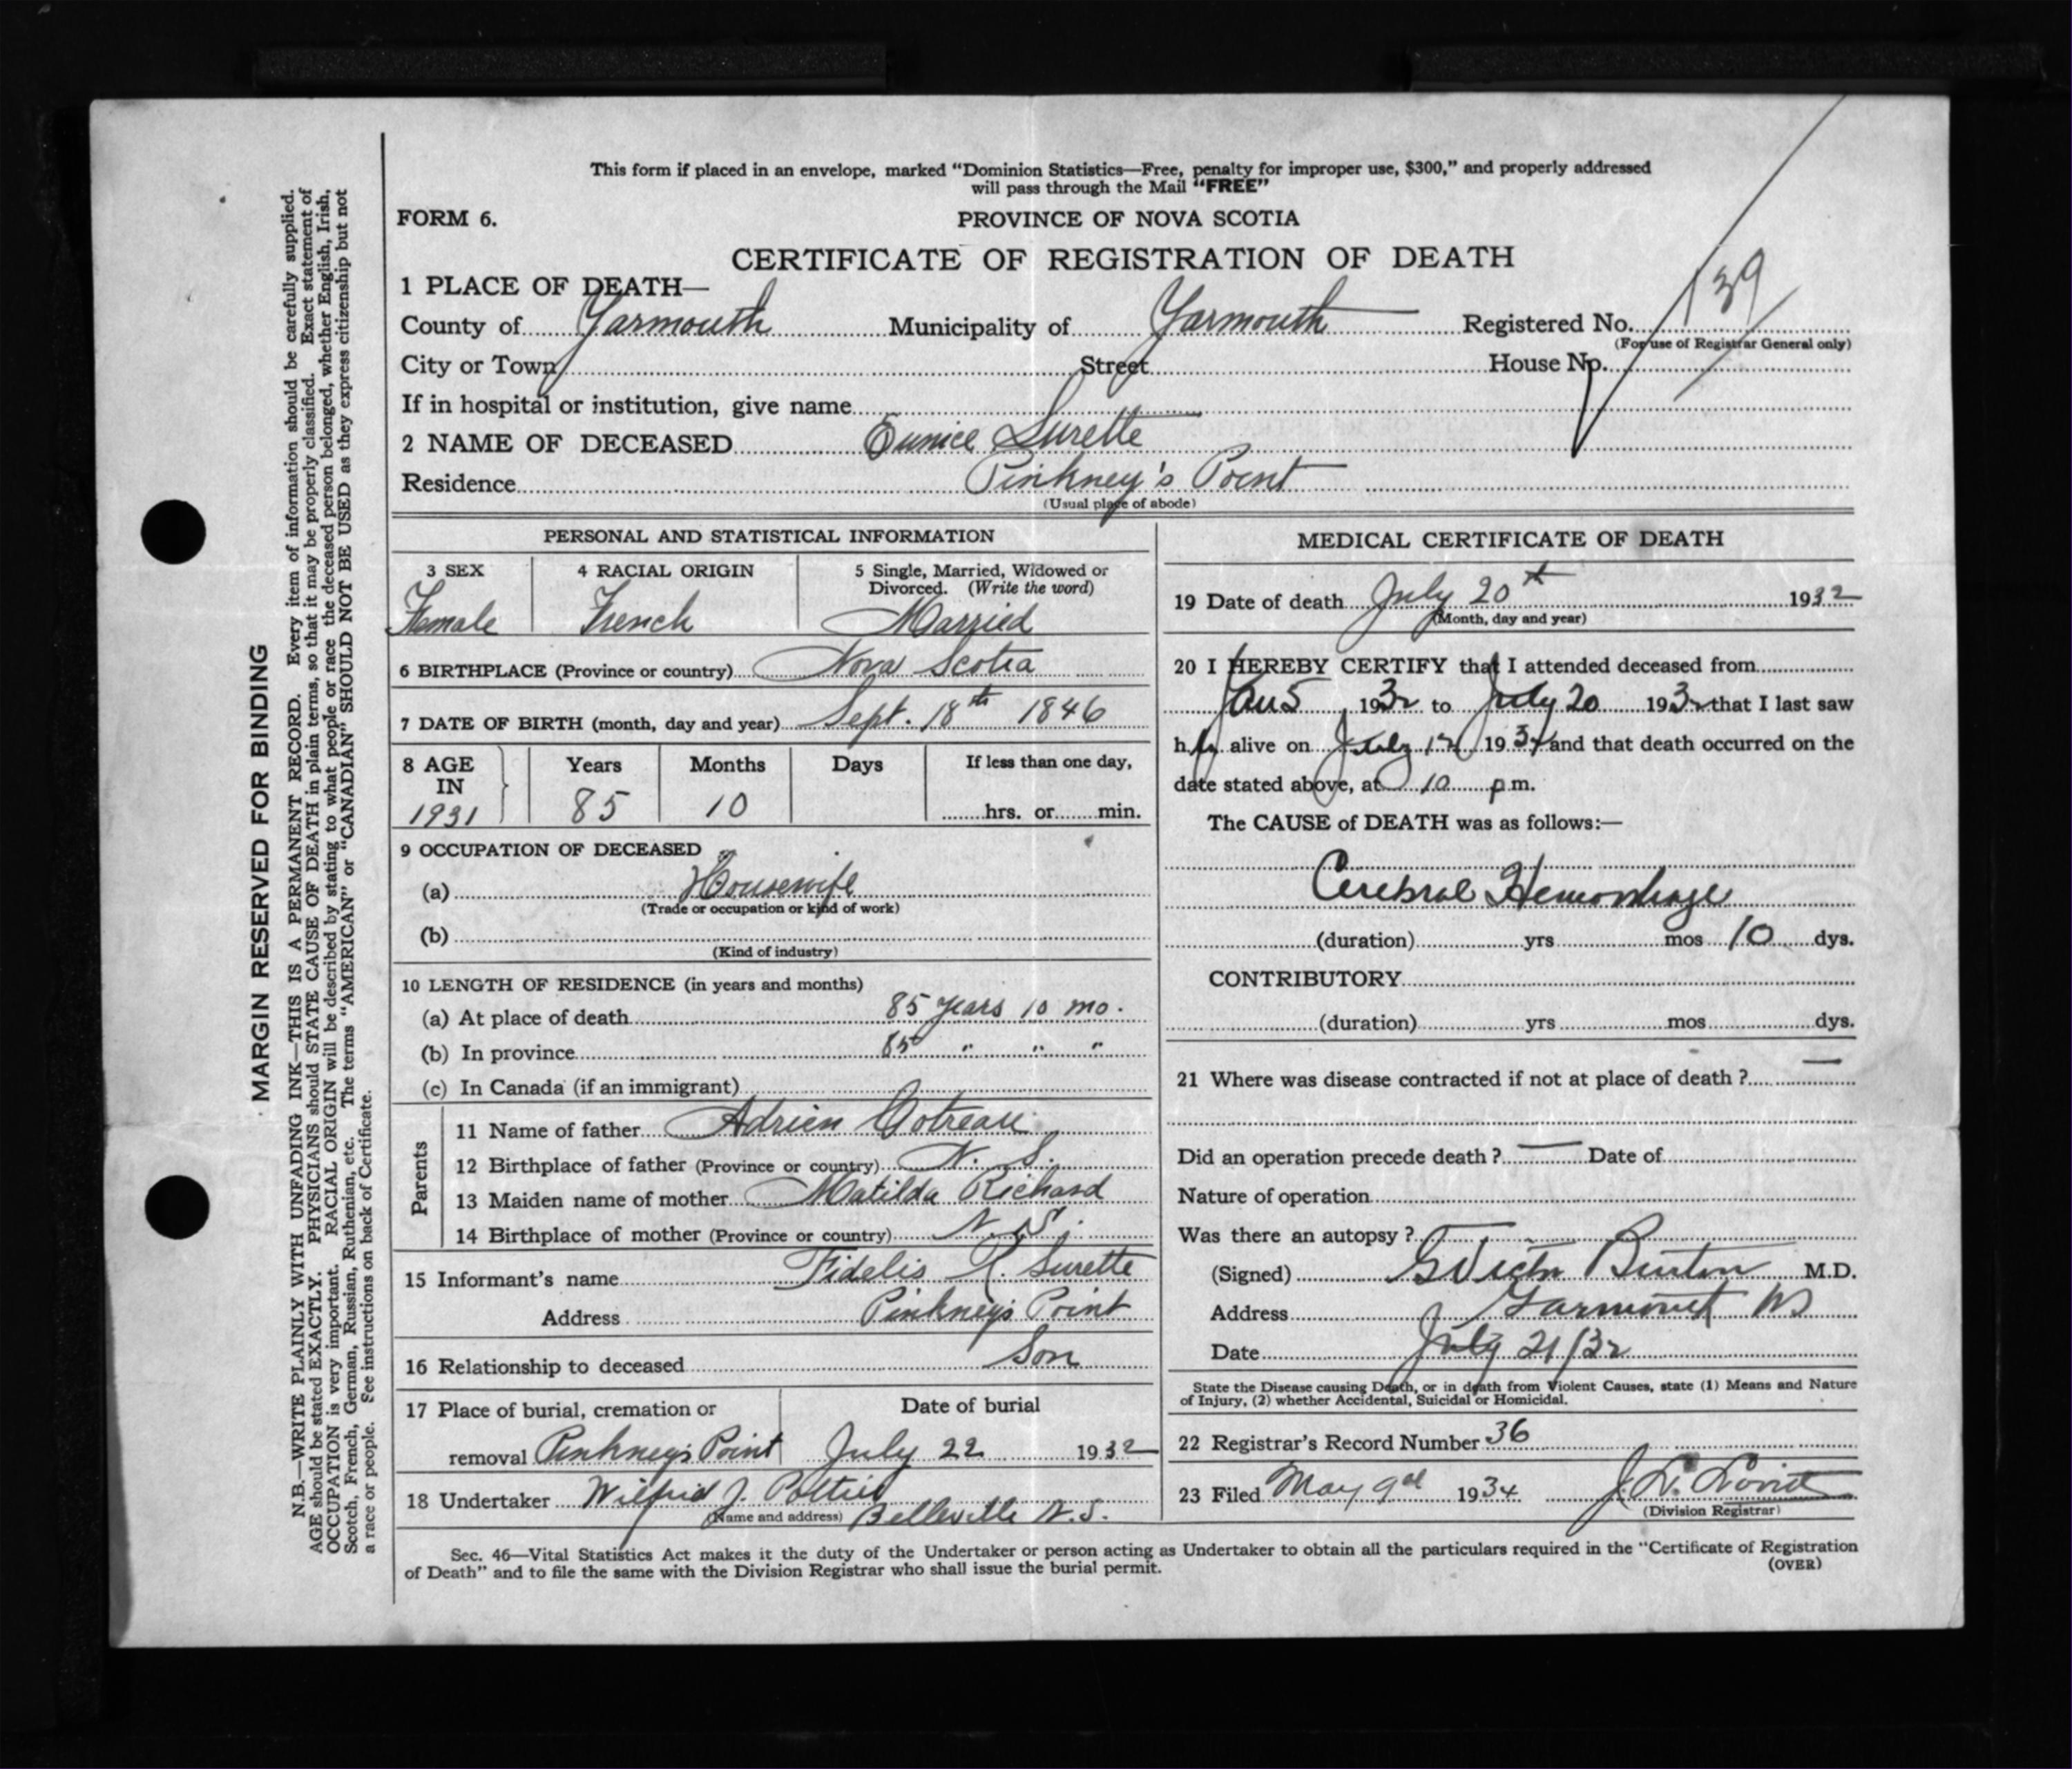 This form if placed in an envelope, marked “Dominion Statistics—Free, penalty for improper use, $300,” and properly addressed
will pass through the Mail “FREE”
FORM 6.
PROVINCE OF NOVA SCOTIA
CERTIFICATE OF REGISTRATION OF DEATH
1 PLACE OF DEATH—
139
County of Yarmouth Municipality of Yarmouth Registered No.
(For use of Registrar General only)
City or Town Street House No.
If in hospital or institution, give name
2 NAME OF DECEASED Eunice Surette
Residence Pinkney's Point
(Usual place of abode)
PERSONAL AND STATISTICAL INFORMATION
3 SEX 4 RACIAL ORIGIN 5 Single, Married, Widowed or
Divorced. (Write the word)
Female French Married
6 BIRTHPLACE (Province or country) Nova Scotia
7 DATE OF BIRTH (month, day and year) Sept. 18th 1846
8 AGE Years Months Days If less than one day,
IN
1931 85 10 hrs. or min.
9 OCCUPATION OF DECEASED
(a) Housewife
(Trade or occupation or kind of work)
(b)
(Kind of industry)
10 LENGTH OF RESIDENCE (in years and months)
(a) At place of death 85 years 10 mo.
(b) In province 85 " " "
(c) In Canada (if an immigrant)
Parents
11 Name of father Adrien Cotreau
12 Birthplace of father (Province or country) N. S.
13 Maiden name of mother Matilda Richard
14 Birthplace of mother (Province or country) N. S.
15 Informant's name Fidelis R. Surette
Address Pinkney's Point
16 Relationship to deceased Son
17 Place of burial, cremation or Date of burial
removal Pinkney's Point July 22 1932
18 Undertaker Wilfrid J. Pottier
(Name and address) Belleville N.S.
MEDICAL CERTIFICATE OF DEATH
19 Date of death July 20th 1932
(Month, day and year)
20 I HEREBY CERTIFY that I attended deceased from
Jan 5 1932 to July 20 1932 that I last saw
her alive on July 1932 and that death occurred on the
date stated above, at 10 p m.
The CAUSE of DEATH was as follows:—
Cerebral Hemorrhage
(duration) yrs mos 10 dys.
CONTRIBUTORY
(duration) yrs mos dys.
21 Where was disease contracted if not at place of death ? —
Did an operation precede death ? — Date of
Nature of operation
Was there an autopsy ?
(Signed) G Victor Burton M.D.
Address Yarmouth NS
Date July 21/32
State the Disease causing Death, or in death from Violent Causes, state (1) Means and Nature
of Injury, (2) whether Accidental, Suicidal or Homicidal.
22 Registrar's Record Number 36
23 Filed May 1934
(Division Registrar)
Sec. 46—Vital Statistics Act makes it the duty of the Undertaker or person acting as Undertaker to obtain all the particulars required in the “Certificate of Registration
of Death” and to file the same with the Division Registrar who shall issue the burial permit.
(OVER)
MARGIN RESERVED FOR BINDING
N.B.—WRITE PLAINLY WITH UNFADING INK—THIS IS A PERMANENT RECORD. Every item of information should be carefully supplied.
AGE should be stated EXACTLY. PHYSICIANS should STATE CAUSE OF DEATH in plain terms, so that it may be properly classified. Exact statement of
OCCUPATION is very important. RACIAL ORIGIN will be described by stating to what people or race the deceased person belonged, whether English, Irish,
Scotch, French, German, Russian, Ruthenian, etc. The terms “AMERICAN” or “CANADIAN” SHOULD NOT BE USED as they express citizenship but not
a race or people. See instructions on back of Certificate.